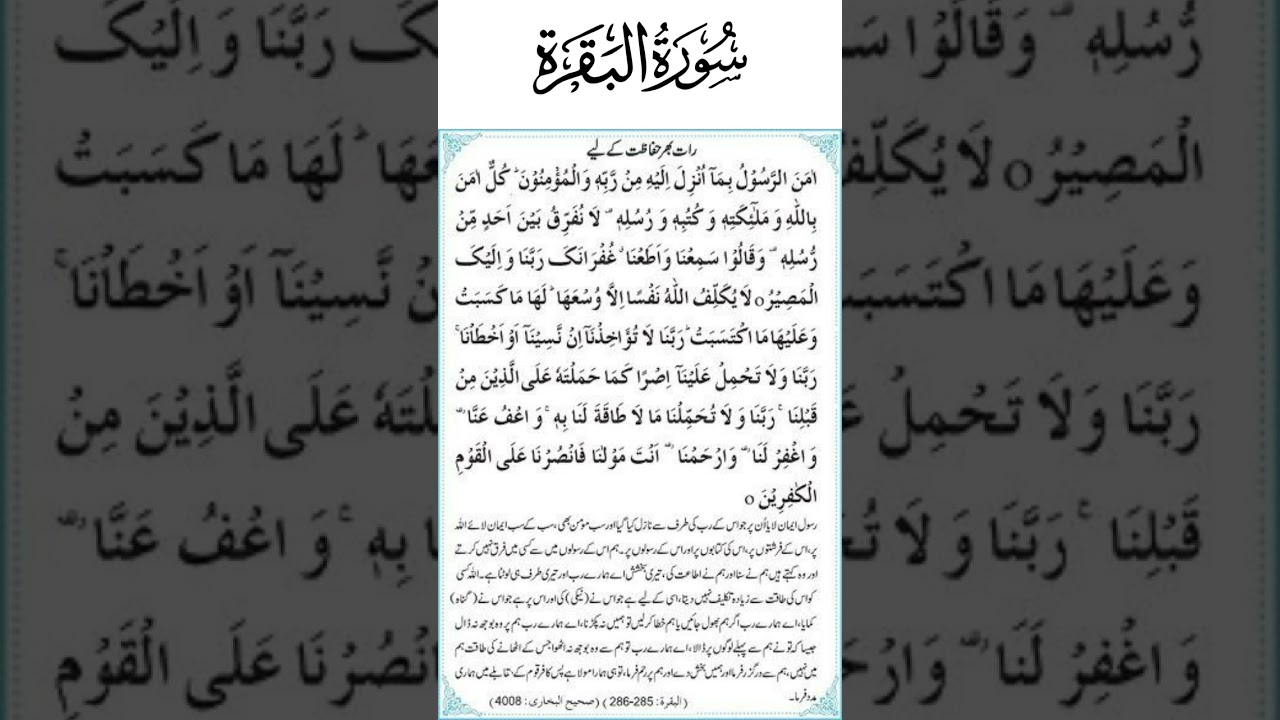 سُورَةُ الْبَقَرَة
رات بھر حفاظت کے لیے
اٰمَنَ الرَّسُوْلُ بِمَآ اُنْزِلَ اِلَيْهِ مِنْ رَّبِّهٖ وَالْمُؤْمِنُوْنَ ؕ كُلٌّ اٰمَنَ
بِاللّٰهِ وَ مَلٰٓئِكَتِهٖ وَ كُتُبِهٖ وَ رُسُلِهٖ ۟ لَا نُفَرِّقُ بَيْنَ اَحَدٍ مِّنْ
رُّسُلِهٖ ۟ وَقَالُوْا سَمِعْنَا وَاَطَعْنَا ۗ غُفْرَانَكَ رَبَّنَا وَ اِلَيْكَ
الْمَصِيْرُ o لَا يُكَلِّفُ اللّٰهُ نَفْسًا اِلَّا وُسْعَهَا ؕ لَهَا مَا كَسَبَتْ
وَعَلَيْهَا مَا اكْتَسَبَتْ ؕ رَبَّنَا لَا تُؤَاخِذْنَآ اِنْ نَّسِيْنَآ اَوْ اَخْطَاْنَا ۚ
رَبَّنَا وَلَا تَحْمِلْ عَلَيْنَآ اِصْرًا كَمَا حَمَلْتَهٗ عَلَى الَّذِيْنَ مِنْ
قَبْلِنَا ۚ رَبَّنَا وَ لَا تُحَمِّلْنَا مَا لَا طَاقَةَ لَنَا بِهٖ ۚ وَ اعْفُ عَنَّا ۟
وَ اغْفِرْ لَنَا ۟ وَارْحَمْنَا ۟ اَنْتَ مَوْلٰنَا فَانْصُرْنَا عَلَى الْقَوْمِ
الْكٰفِرِيْنَ o
رسول ایمان لایا اُس پر جو اس کے رب کی طرف سے نازل کیا گیا اور سب مؤمن بھی، سب کے سب ایمان لائے اللہ
پر، اس کے فرشتوں پر، اس کی کتابوں پر اور اس کے رسولوں پر۔ ہم اس کے رسولوں میں سے کسی میں فرق نہیں کرتے
اور وہ کہتے ہیں ہم نے سنا اور ہم نے اطاعت کی، تیری بخشش اے ہمارے رب اور تیری طرف ہی لوٹنا ہے۔ اللہ کسی
کو اس کی طاقت سے زیادہ تکلیف نہیں دیتا، اسی کے لیے ہے جو اس نے (نیکی) کی اور اس پر ہے جو اس نے (گناہ)
کمایا، اے ہمارے رب اگر ہم بھول جائیں یا ہم خطا کر لیں تو ہمیں نہ پکڑنا، اے ہمارے رب ہم پر وہ بوجھ نہ ڈال
جیسا کہ تو نے ہم سے پہلے لوگوں پر ڈالا، اے ہمارے رب تو ہم سے وہ بوجھ نہ اٹھوا جس کے اٹھانے کی طاقت ہم
میں نہیں، ہم سے درگزر فرما اور ہمیں بخش دے اور ہم پر رحم فرما، تو ہی ہمارا مولا ہے پس کافر قوم کے مقابلے میں ہماری
مدد فرما۔
(البقرة: 285-286) (صحيح البخاری: 4008)